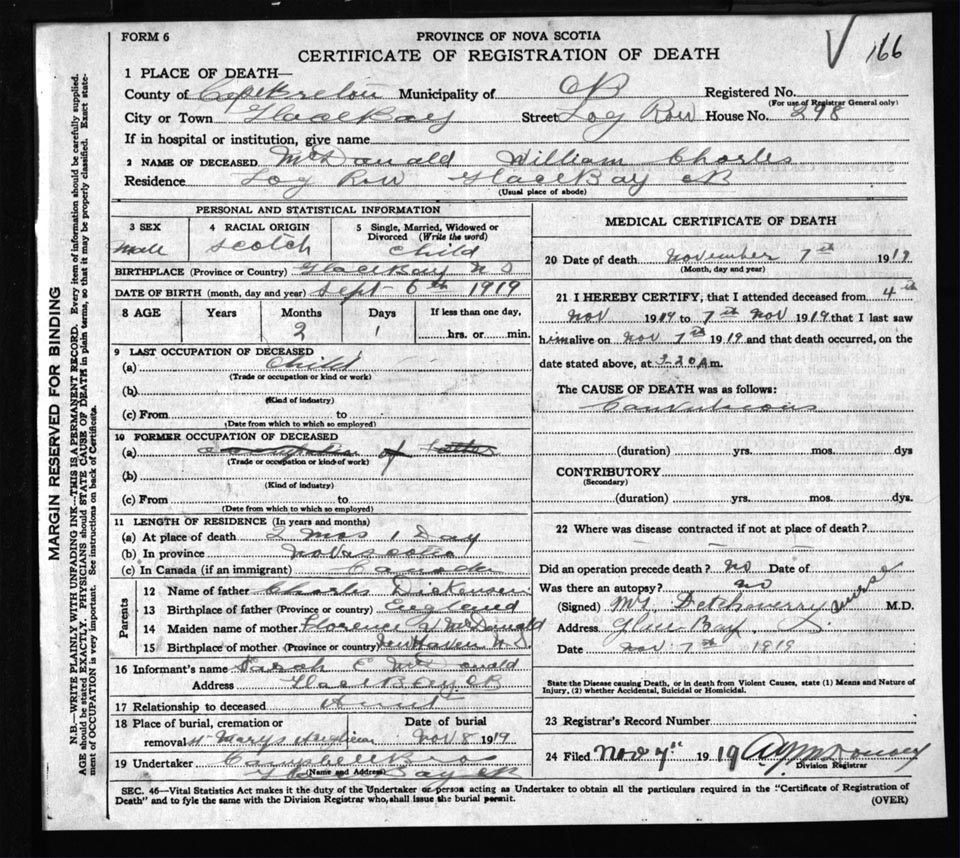 FORM 6
PROVINCE OF NOVA SCOTIA
CERTIFICATE OF REGISTRATION OF DEATH
166
1 PLACE OF DEATH—
County of Cape Breton Municipality of CB Registered No.
(For use of Registrar General only)
City or Town Glace Bay Street Log Row House No. 298
If in hospital or institution, give name
2 NAME OF DECEASED McDonald William Charles
Residence Log Row Glace Bay CB
(Usual place of abode)
PERSONAL AND STATISTICAL INFORMATION
3 SEX male
4 RACIAL ORIGIN Scotch
5 Single, Married, Widowed or Divorced (Write the word) child
BIRTHPLACE (Province or Country) Glace Bay N S
DATE OF BIRTH (month, day and year) Sept 6th 1919
8 AGE Years Months 2 Days 1 If less than one day, hrs. or min.
9 LAST OCCUPATION OF DECEASED
(a) child
(Trade or occupation or kind or work)
(b)
(Kind of industry)
(c) From to
(Date from which to which so employed)
10 FORMER OCCUPATION OF DECEASED
(a) of Father
(Trade or occupation or kind of work)
(b)
(Kind of industry)
(c) From to
(Date from which to which so employed)
11 LENGTH OF RESIDENCE (In years and months)
(a) At place of death 2 mos 1 Day
(b) In province Nova Scotia
(c) In Canada (if an immigrant) Canada
Parents
12 Name of father Charles Dickenson
13 Birthplace of father (Province or country) England
14 Maiden name of mother Florence McDonald
15 Birthplace of mother (Province or country) New Haven N.S.
16 Informant's name Sarah C McDonald
Address Glace Bay CB
17 Relationship to deceased Aunt
18 Place of burial, cremation or removal St Marys Anglican Date of burial Nov 8 1919
19 Undertaker Campbell Bros
(Name and Address)
Glace Bay CB
MEDICAL CERTIFICATE OF DEATH
20 Date of death November 7th 1919
(Month, day and year)
21 I HEREBY CERTIFY, that I attended deceased from 4th
Nov 1919 to 7th Nov 1919 that I last saw
him alive on Nov 7th 1919 and that death occurred, on the
date stated above, at 3-20 A m.
The CAUSE OF DEATH was as follows:
Convulsions
(duration) yrs. mos. dys
CONTRIBUTORY
(Secondary)
(duration) yrs. mos. dys.
22 Where was disease contracted if not at place of death?
Did an operation precede death? no Date of
Was there an autopsy? no
(Signed) Detcheverry nurse M.D.
Address Glace Bay
Date Nov 7th 1919
State the Disease causing Death, or in death from Violent Causes, state (1) Means and Nature of
Injury, (2) whether Accidental, Suicidal or Homicidal.
23 Registrar's Record Number
24 Filed Nov 7th 1919
Division Registrar
SEC. 46—Vital Statistics Act makes it the duty of the Undertaker or person acting as Undertaker to obtain all the particulars required in the "Certificate of Registration of
Death" and to fyle the same with the Division Registrar who, shall issue the burial permit.
(OVER)
MARGIN RESERVED FOR BINDING
N.B.—WRITE PLAINLY WITH UNFADING INK—THIS IS A PERMANENT RECORD. Every item of information should be carefully supplied.
AGE should be stated EXACTLY. PHYSICIANS should STATE CAUSE OF DEATH in plain terms, so that it may be properly classified. Exact state-
ment of OCCUPATION is very important. See instructions on back of Certificate.